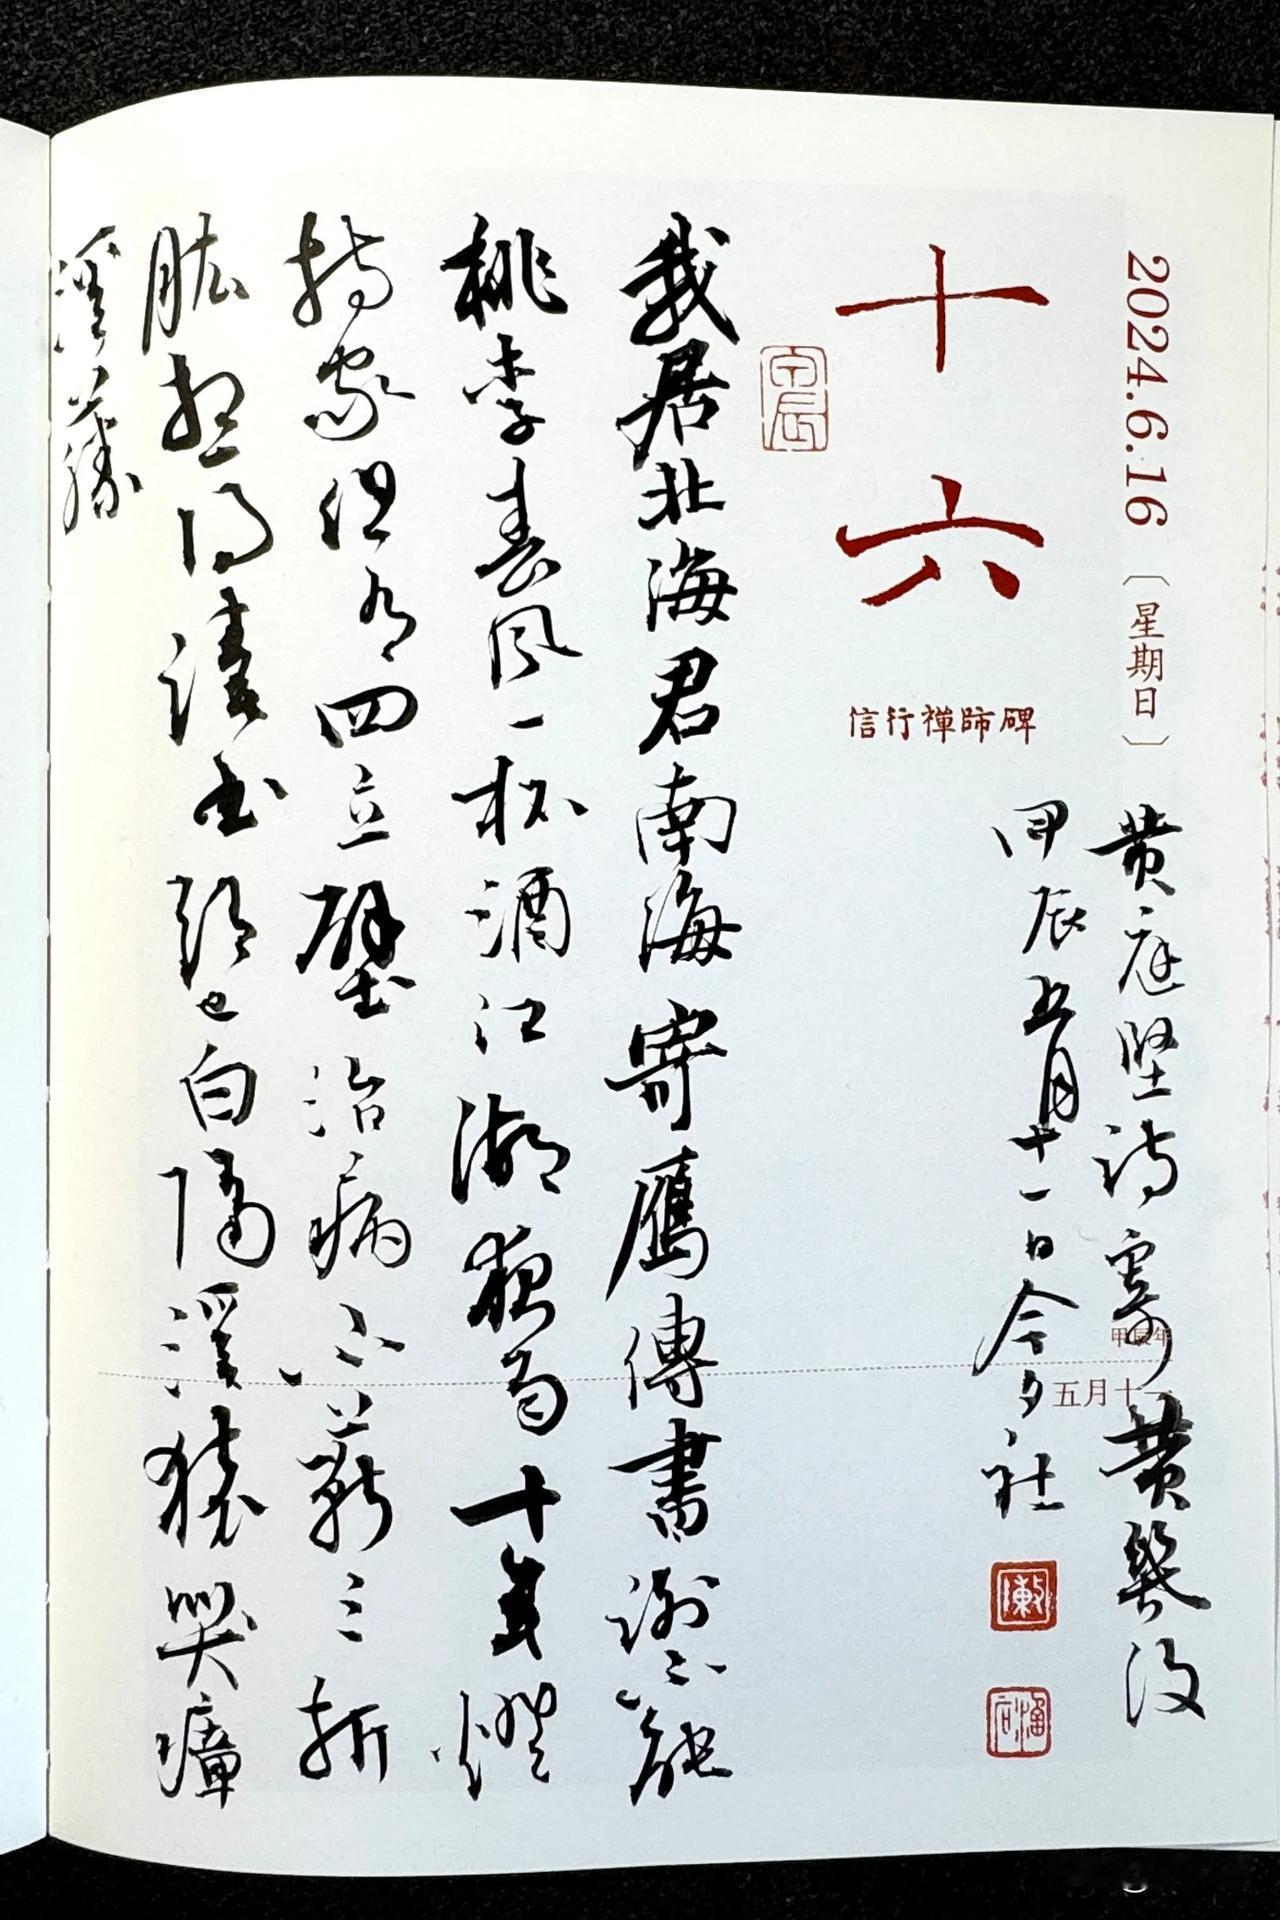 2024.6.16〔星期日〕
黄庭坚诗寄黄幾復
十六
信行禪師碑
甲辰年
五月十一
甲辰五月十一日今夕社
我居北海君南海寄鴈傳書謝不能
桃李春风一杯酒江湖夜雨十年燈
持家但有四立壁治病不蘄三折
肱想得读书頭已白隔溪猿哭瘴
溪藤